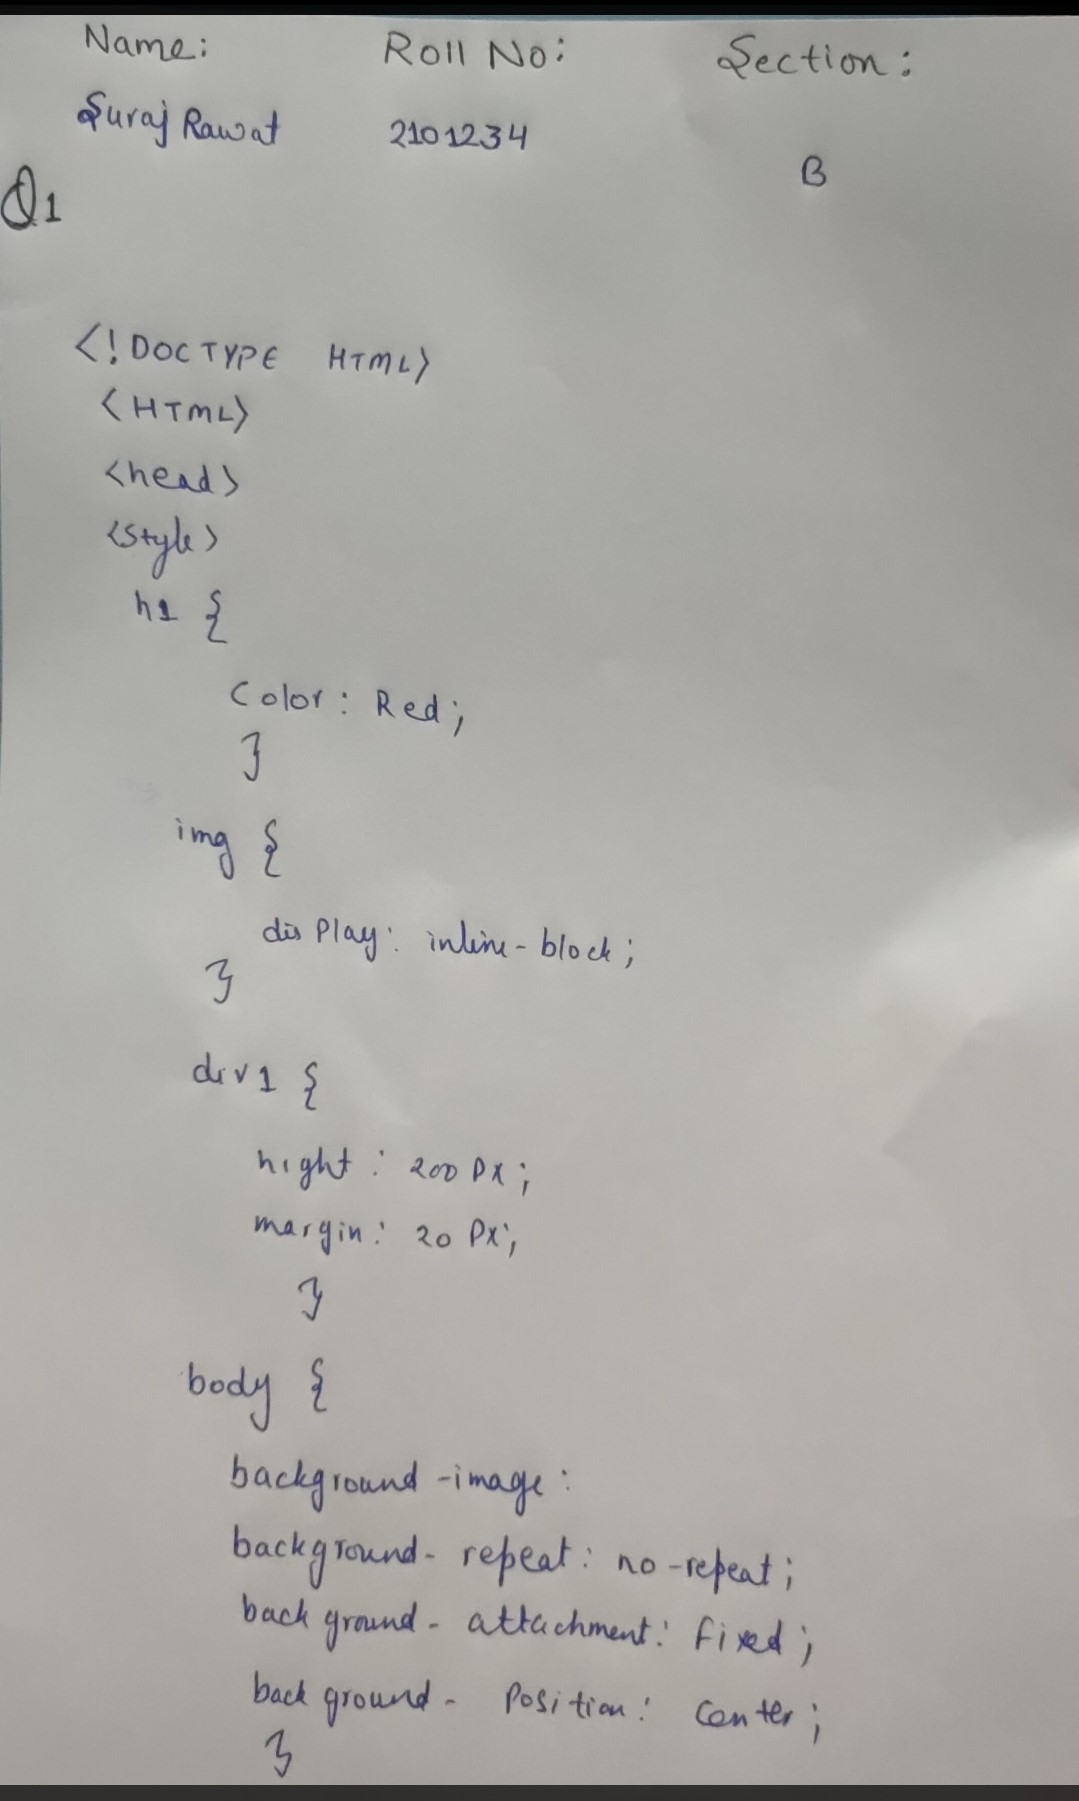 Name: Roll No: Section:
Suraj Rawat 2101234 B
Q1
<!DOCTYPE HTML>
<HTML>
<head>
<style>
h1 {
Color: Red;
}
img {
display: inline-block;
}
div1 {
hight: 200 px;
margin: 20 Px;
}
body {
background-image:
background-repeat: no-repeat;
background-attachment: fixed;
background-Position: Center;
}